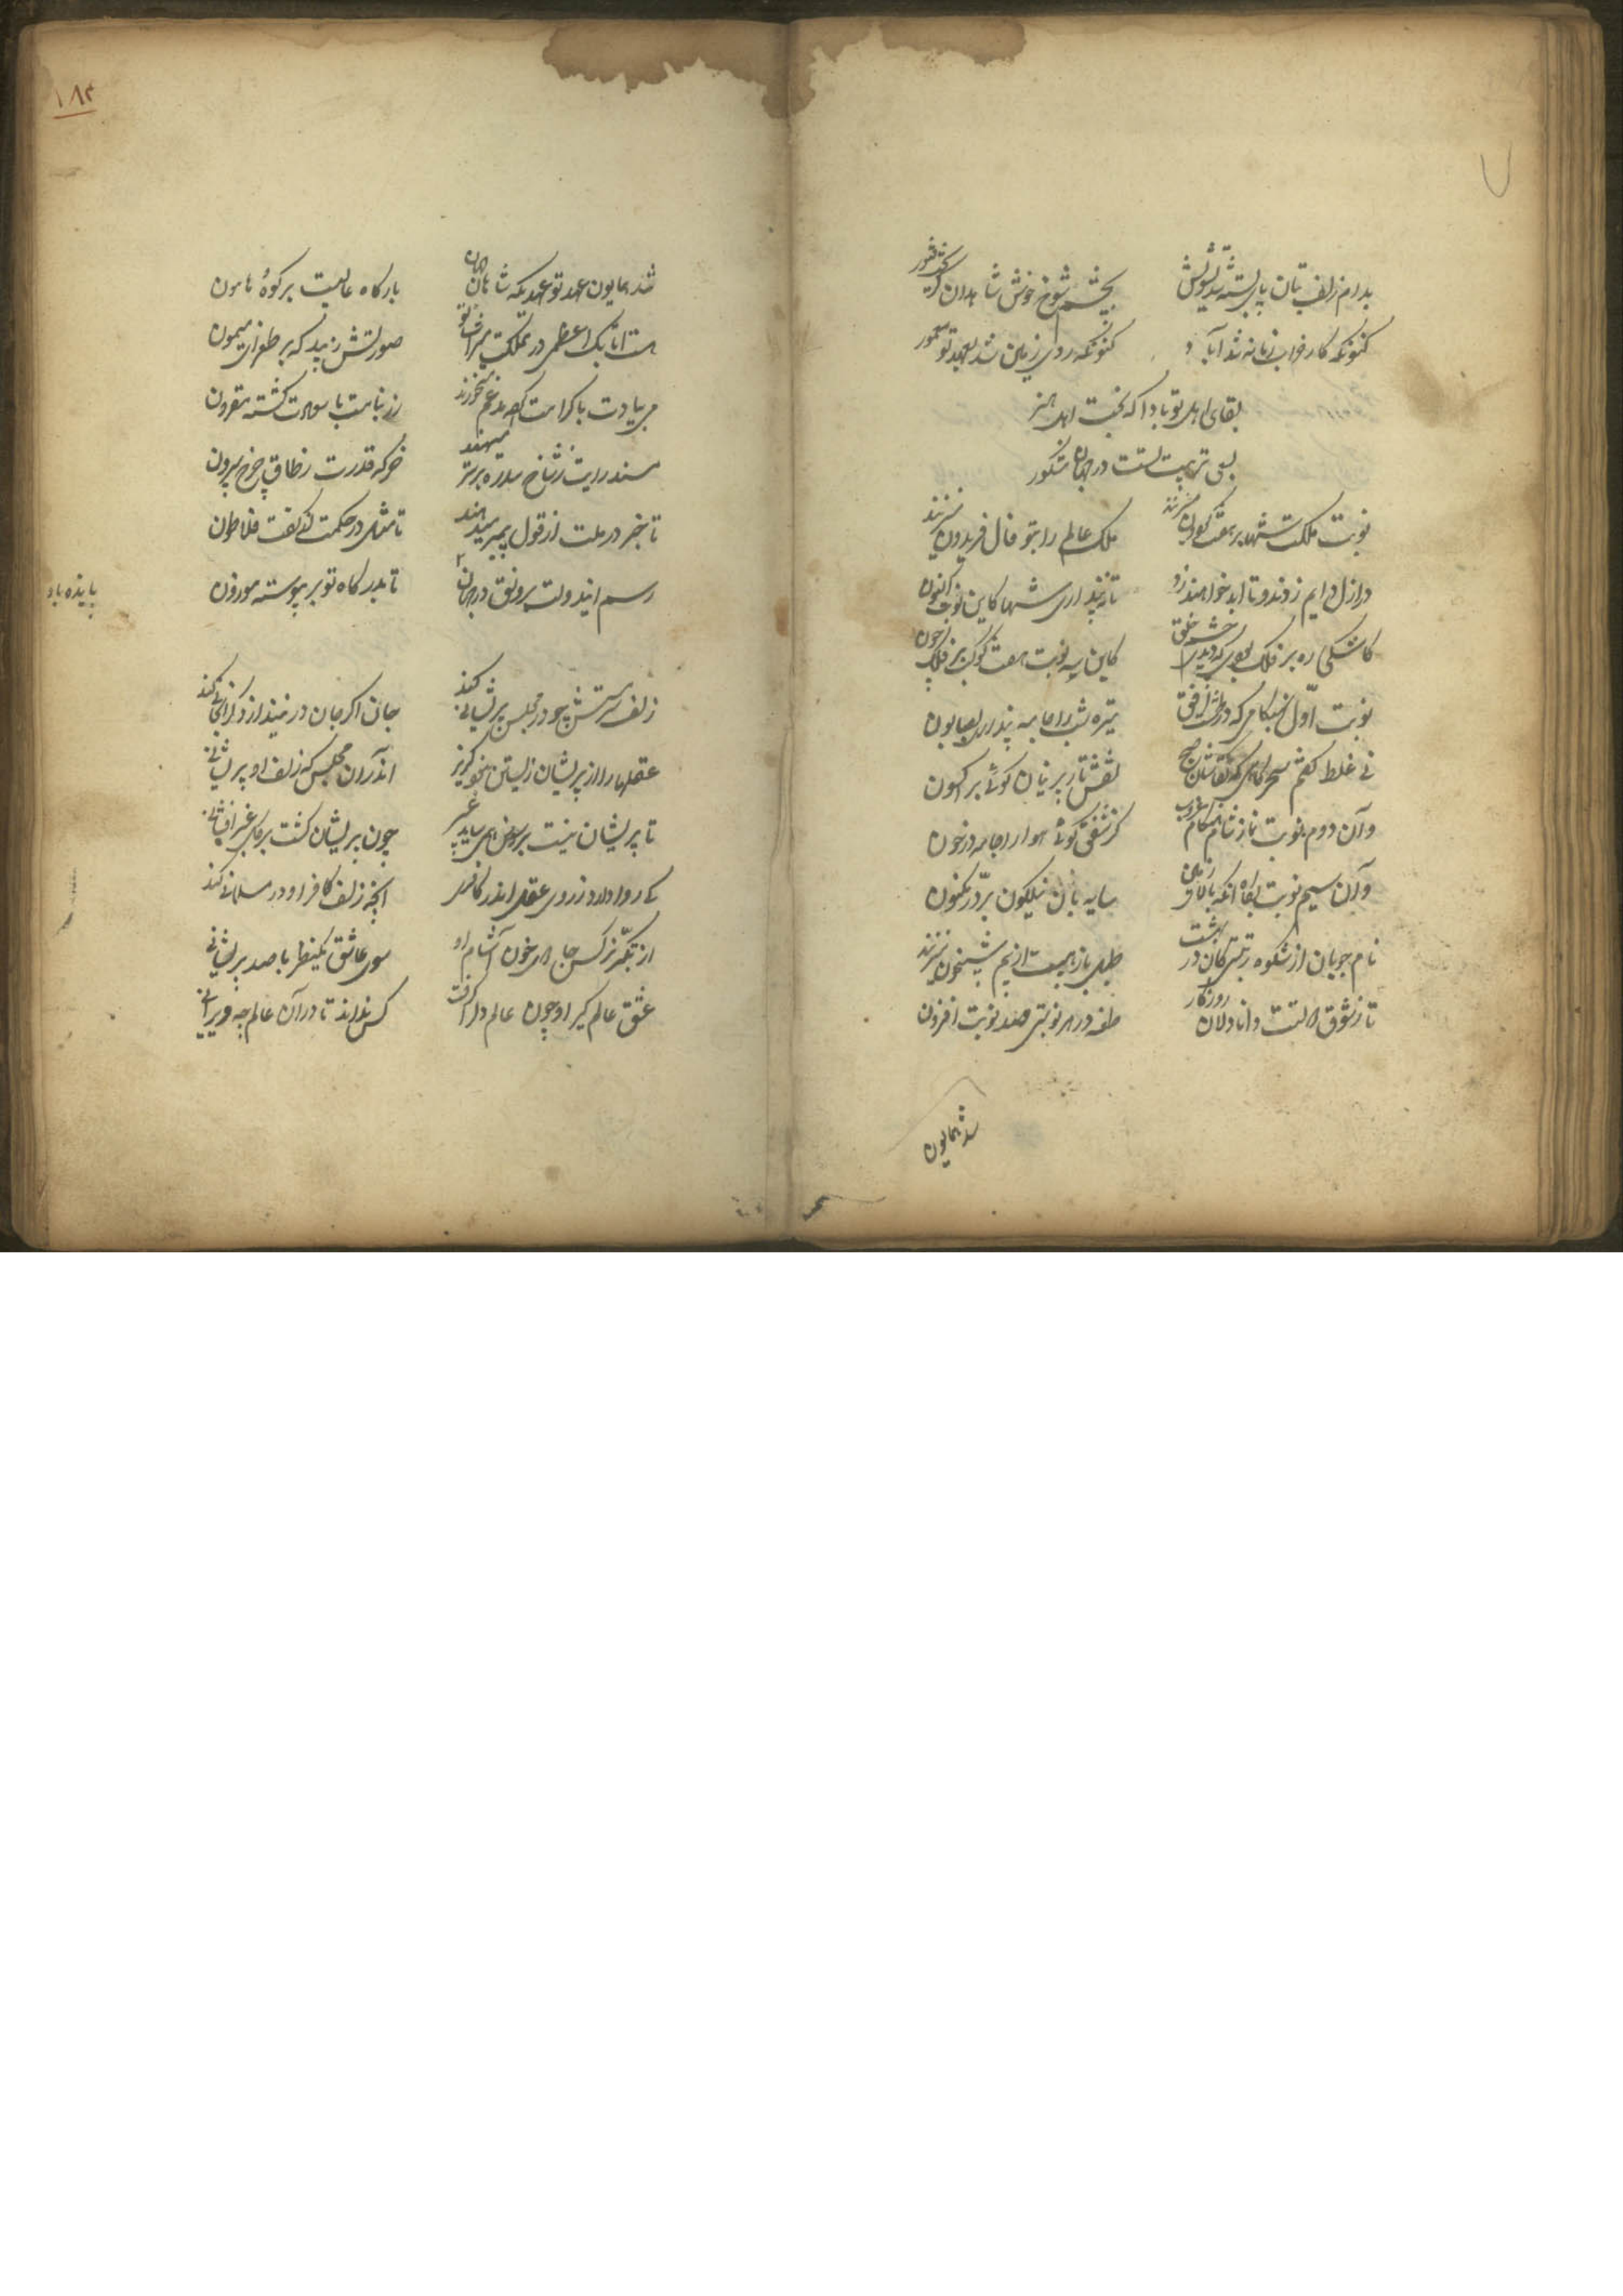 بدام زلف بتان پای بسته شد تشویش
بچشم شوخ خوش شاهدان گریخت فتور
کنونکه کار خراب زمانه شد آباد
کنونکه روی زمین شد بعهد تو معمور
بقای اهل تو بادا که بخت اهل هنر
بسعی تربیت تست در جهان مشکور
نوبت ملکت شها بر هفت گردون میزنند
ملک عالم را بتو فال فریدون میزنند
در ازل دایم زدند و تا ابد خواهند زد
تا نپنداری شها کاین نوبت اکنون
کاشکی ره بر فلک بودی که دیدی چشم خلق
کاین سه نوبت هفت کوکب بر فلک چون
نوبت اول بهنگامی که در طشت افق
تیره شب را جامه پنداری بصابون
نی غلط گفتم سحرگاهی که نقاشان صبح
نقش تار پرنیان گوئی بر اکسون
وآن دوم نوبت نماز شام هنگام غروب
کز شفق گوئی هوا را جامه در خون
وآن سیم نوبت بگاه آنکه بالای زمین
سایه بان نیلگون بر در مکنون
نام جویان از شکوه رتبتش کان در بهشت
طبل باز هیبت از بیم شبیخون میزنند
تا ز شوق التت دانا دلان روزگار
طعنه در هر نوبتی صد نوبت افزون
شد همایون
۱۸۴
شد همایون عهد تو عهدیکه شاهان جهان
بارگاه عالیت بر کوه هامون
هست اتابک اعظمی در مملکت
صورتش زیبد که بر طغرای میمون
بر یادت با کرامت
زر بنامت با سعادت گشته مقرون
مسند رایت ز شاخ سدره برتر مینهند
خرگه قدرت ز طاق چرخ بیرون
تا خبر در ملت از قول پیمبر میدهند
تا مثل در حکمت از گفت فلاطون
رسم این دولت برونق در جهان
تا بدرگاه تو بر پیوسته موزون
پاینده باد
زلف سرمستش چو در مجلس پریشانی کند
جان اگر جان در نیندازد گرانجانی کند
عقلها را از پریشان زیستن نبود گزیر
اندر آن مجلس که زلف او پریشانی
تا پریشان نیست بر سر می ساید عبیر
چون پریشان گشت بر گل عنبر افشانی
کی روا دارد ز روی عقل اندر کافری
آنچه زلف کافر او در مسلمانی کند
از تکبر نرگس جادوی خون آشام او
سوی عاشق یکنظر با صد پریشانی
عشق عالم گیر او چون عالم دل را گرفت
کس نداند تا در آن عالم چه ویرانی